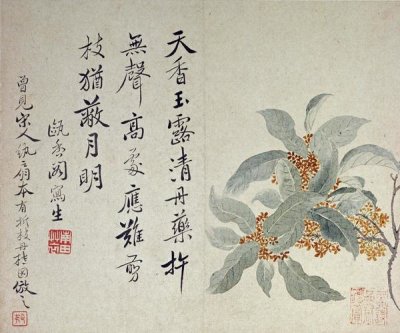 天香玉露清丹藥杵
無聲高處應難剪
枝猶蔽月明
甌香閣寫生
曾見宋人紈扇本有折枝丹桂因倣之